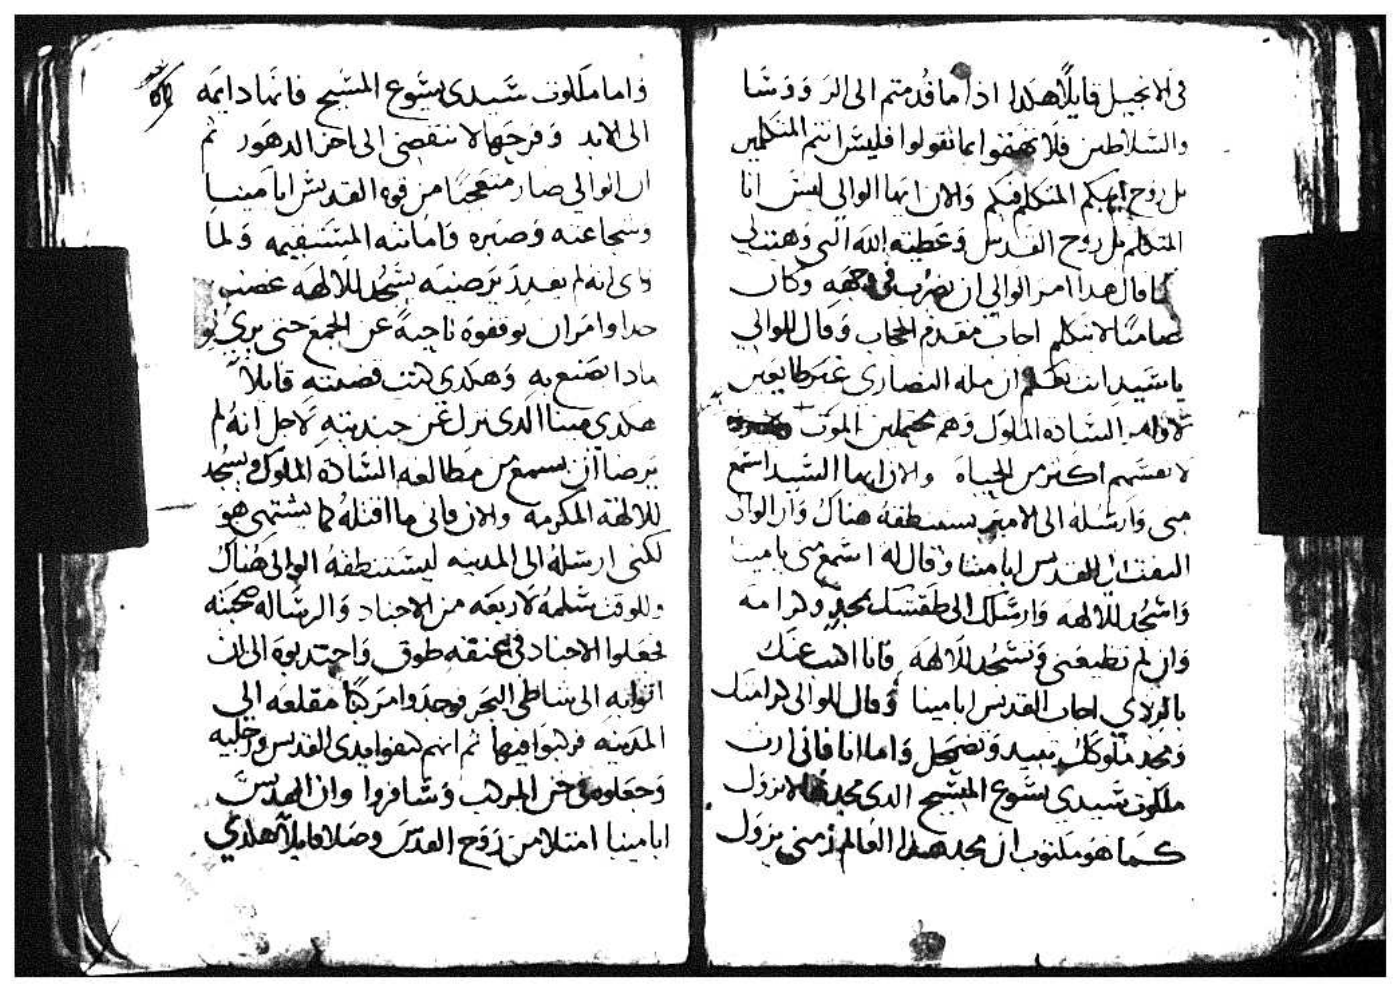 في الانجيل قايلاً هكدا اذا ما قُدمتم الى الرووشَا
والسَلاطين فلا تهتموا بما تقولوا فليسَ انتم المتكلمين
بل روح ابيكم المتكلم فيكم وَالان ايها الوالي ليسَ انا
المتكلم بل روح القدسَ وَعطية الله التي وَهبت لي
قال هدا امر الوالي ان يضرب في وجهه وكان
صامتا لا يتكلم اجاب مقدم الحجاب وَقال للوالي
يا سَيد انت تعلم ان مله النصارى غير طايعين
لاوامر السَاده الملوك وَهم محتملين الموت
لانفسَهم اكتر من الحياه والان ايها السَيد اسَتمع
مني وَارسَله الى الامير يستنطقه هناك وَان الوالي
التفت الى القديس ابا مينا وَقال له اسَتمع مني يا مينا
وَاسَجُد للالهه وَارسَلك الى طقسَك بمجدٍ وكرامه
وَان لم تطيعني وَتسَجُد للالهه فانا اكتب عنك
بالردي اجاب القديس ابا مينا وَقال للوالي كرامتك
وَمجد ملوكك يبيد وَيضمحل وَاما انا فاني ارت
ملكوت سَيدي يسَوع المسَيح الدي مجدها لا يزول
كما هو مكتوب ان مجد هدا العالم زمني يزول
وَاما ملكوت سَيدى يسَوع المسَيح فانها دايمَه
الى الابد وَفرحها لا ينقضى الى اخر الدهور تم
ان الوالي صار متعجبًا من قوه القديسَ ابا مينا
وشجاعته وَصبره وَامانته المسَتقيمه وَلما
راى انه لم يقدر يرضيه يسَجُد للالهه غضب
جدا وامر ان يوقفوه ناحيةً عن الجمع حتى يرى
مادا يصنع به وَهكدي كتب قضيته قايلاً
هكدي مينا الدى نزل عن جنديته لاجل انه لم
يرضا ان يسمع من مطالعه السَاده الملوك ويسجُد
للالهه المكرمه والان فانى ما اقتله كما يشتهى هو
لكني ارسَله الى المدينه ليسَتنطقهُ الوالى هناك
وللوقت سَلمهُ لاربعه من الاجناد وَالرسَاله صحبته
فجعلوا الاجناد في عنقه طوق وَاجتدبوهُ الى ان
اتوا به الى شاطى البحر فوجدوا مركبًا مقلعه الى
المدينه فركبوا فيها تم انهم كتفوا يدى القديس ورجليه
وَجعلوه في خن المركب وَسَافروا وان القديسَ
ابا مينا امتلا من رَوح القدسَ وصلا قايلاً هكدي